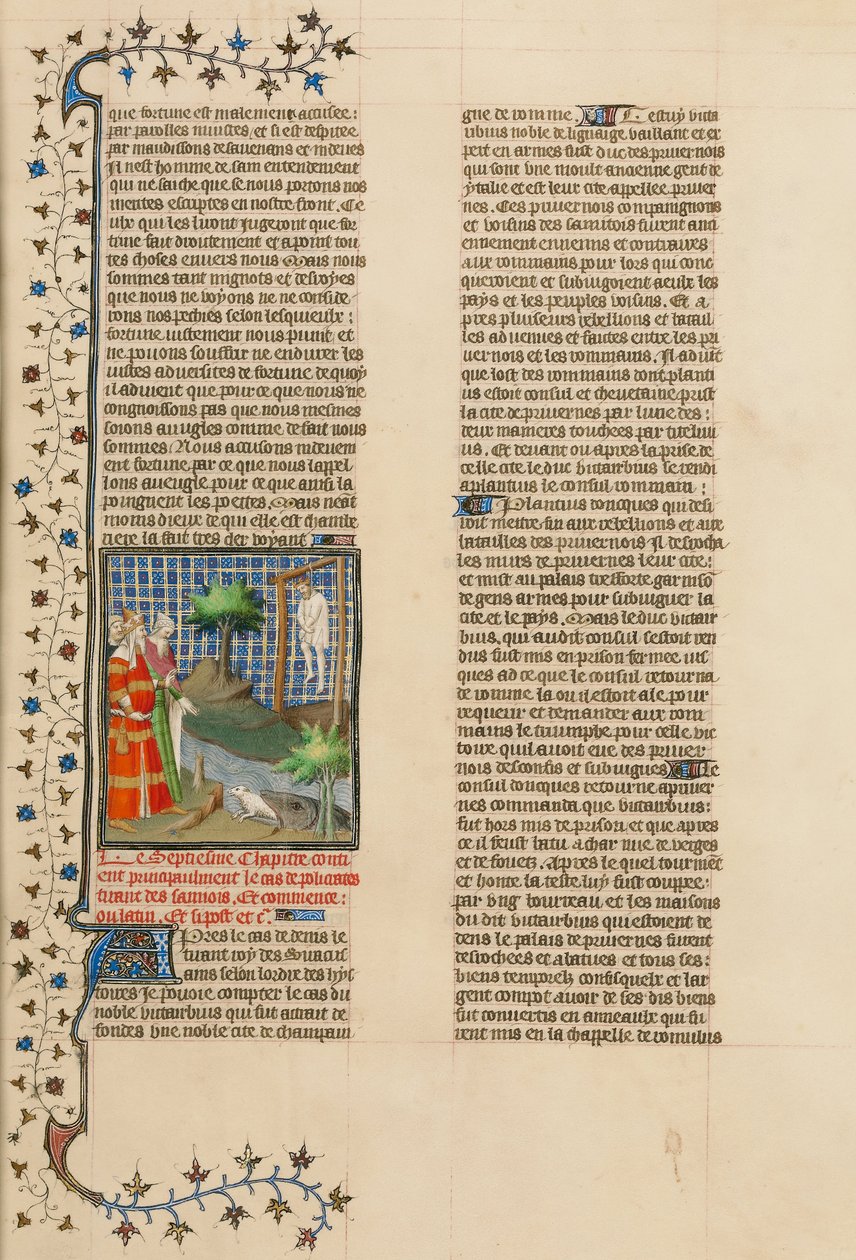 que fortune est malement accusee:
par parolles iniustes, et si est despitee
par maudissons desauenans et indeues
Il nest homme de sain entendement
qui ne saiche que se nous portons nos
mentes escriptes en nostre front. Ce
ulx qui les liront Jugeront que for
tune fait droitement et apoint tou
tes choses enuers nous Mais nous
sommes tant mignots et desuoyes
que nous ne voyons ne ne conside
rons nos pechies selon lesquieulx:
fortune iustement nous punit, et
ne pouons souffrir ne endurer les
iustes aduersites de fortune de quoy
il aduient que pour ce que nous ne
congnoissons pas que nous mesmes
soions aueugles comme de fait nous
sommes. Nous accusons indeuem
ent fortune, par ce que nous lappel
lons aueugle pour ce que ainsi la
poingnent les poettes. Mais neāt
moins dieux de qui elle est chambe
riere la fait tres cler voyant
Le Septiesme Chapitre conti
ent principaulment le cas de policrates
tirant des samiois. Et commence:
ou latin. Et si post et cͤ.
APres le cas de denis le
tirant roy des Siracus
ains selon lordre des hys
toires Je pouoie compter le cas du
noble vitairbius qui fut attrait de
fondes vne noble cite de champain
gne de romme. Cestuy vitai
urbius noble de lignaige vaillant et ex
pert en armes fust duc des priuernois
qui sont vne moult ancienne gent de
ytalie et est leur cite appellee priuer
nes. Ces priuernois compaingnons
et voisins des samitois furent anci
ennement ennemis et contraires
aux rommains pour lors qui conc
queroient et subiugoient a eulx les
pays et les peuples voisins. Et a
pres pluiseurs rebellions et batail
les aduenues et faites entre les pri
uernois et les rommains. Il aduīt
que lost des rommains dont planti
us estoit consul et cheuetaine prist
la cite de priuernes par lune des:
deux manieres touchees par titeliui
us. Et deuant ou apres la prise de
celle cite le duc vitairbius se rendi
a plantius le consul rommain:
Plantius doncques qui desi
roit mettre fin aux rebellions et aux
batailles des priuernois Il despecha
les murs de priuernes leur cite:
et mist au palais tresforte garnisō
de gens armes pour subiuguer la
cite et le pays. Mais le duc vitair
bius, qui audit consul sestoit ren
dus fust mis en prison fermee ius
ques ad ce que le consul retourna
de romme la ou il estoit ale pour
requerir et demander aux rom
mains le triumphe pour celle vic
toire quil auoit eue des priuer
nois desconfis et subiugues Le
consul doncques retourne a priuer
nes commanda que vitairbius:
fut hors mis de prison et que apres
ce il feust batu a char nue de verges
et de fouets. Apres le quel tourmēt
et honte la teste luy fust couppee:
par vng bourreau et les maisons
du dit vitairbius qui estoient de
dens le palais de priuernes furent
despechees et abatues et tous ses:
biens temporelz confisquelz et lar
gent compt auoir de ses dis biens
fut conuertis en anneaulx qui fu
rent mis en la chappelle de romulus